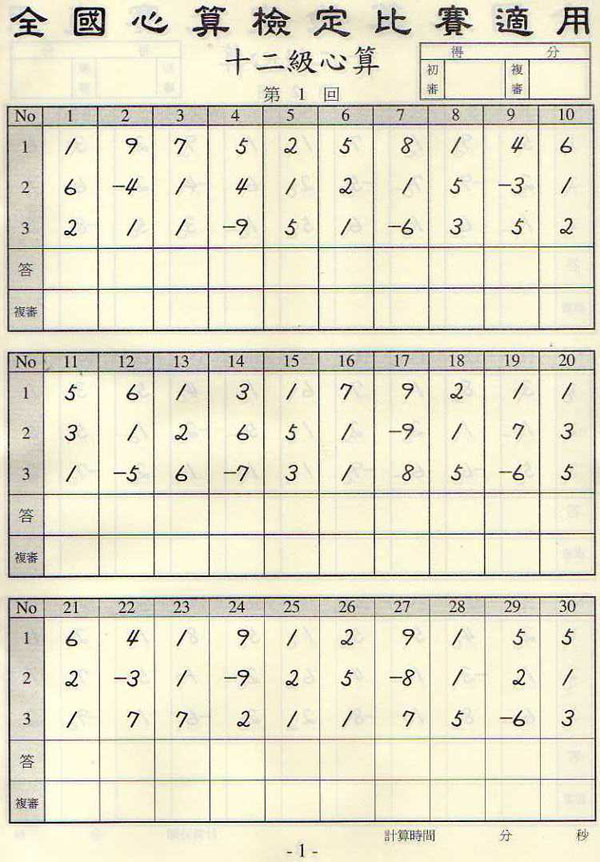 全國心算檢定比賽適用
十二級心算
得 分
初審 複審
第 1 回
No 1 2 3 4 5 6 7 8 9 10
1 1 9 7 5 2 5 8 1 4 6
2 6 -4 1 4 1 2 1 5 -3 1
3 2 1 1 -9 5 1 -6 3 5 2
答
複審
No 11 12 13 14 15 16 17 18 19 20
1 5 6 1 3 1 7 9 2 1 1
2 3 1 2 6 5 1 -9 1 7 3
3 1 -5 6 -7 3 1 8 5 -6 5
答
複審
No 21 22 23 24 25 26 27 28 29 30
1 6 4 1 9 1 2 9 1 5 5
2 2 -3 1 -9 2 5 -8 1 2 1
3 1 7 7 2 1 1 7 5 -6 3
答
複審
計算時間 分 秒
- 1 -